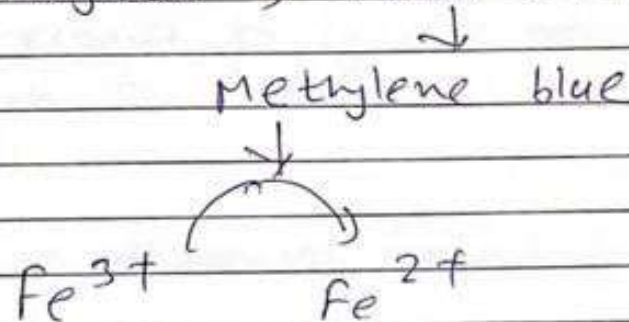 Methylene blue
Fe3+ Fe2+